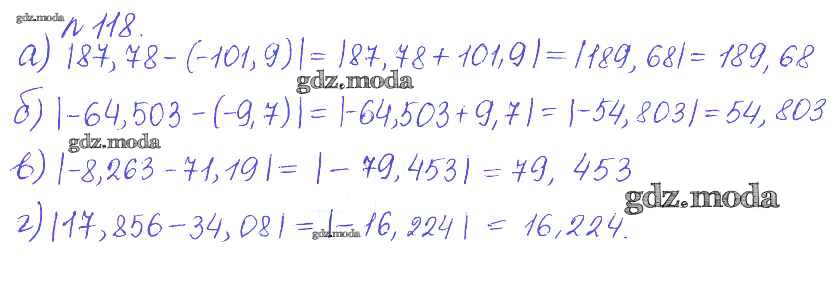 gdz.moda
n 118.
а) |87,78-(-101,9)|=|87,78+101,9|=|189,68|=189,68
gdz.moda
б) |-64,503-(-9,7)|=|-64,503+9,7|=|-54,803|=54,803
gdz.moda
в) |-8,263-71,19|= |-79,453|=79,453
gdz.moda
г) |17,856-34,08|=|-16,224|= 16,224.
gdz.moda